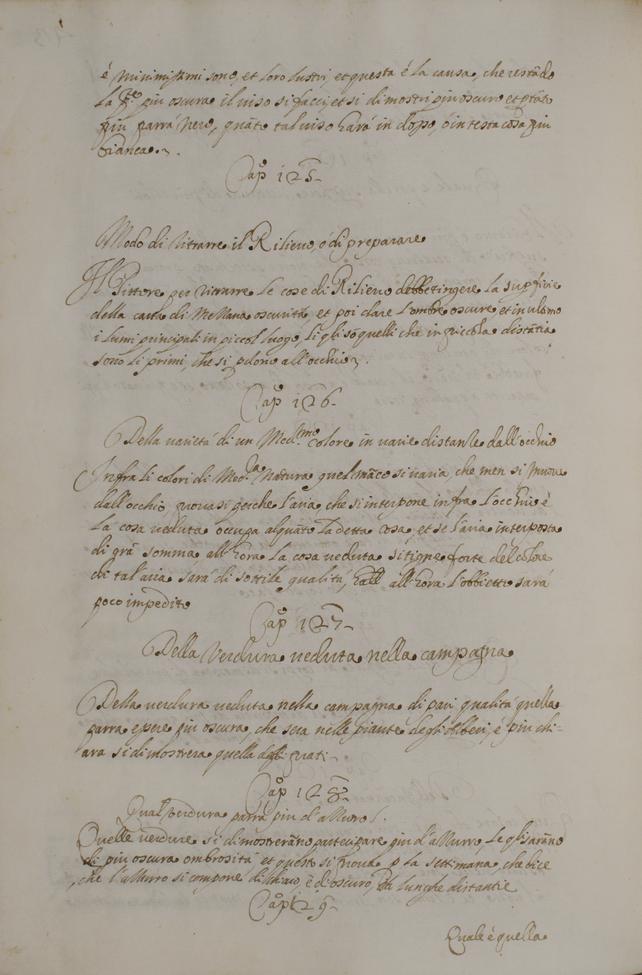 é minimissimi sono, et loro lustri, et questa é la causa, che restãdo
la pte piu oscura il viso si facci, et si dimostri piu oscuro et
piu parrá nero, quãto tal viso hará in dosso, ó in testa cosa piu
bianca.
Cap.º 125
Modo di Ritrarre il Rilievo, ó di preparare
Il Pittore per ritrarre le cose di Rilievo debbe tingere la supficie
della carta di mezzana oscuritá, et poi dare l'ombre oscure et in ultimo
i lumi principali in piccol luogo, li qli sõ quelli che in piccola distãtia
sono li primi, che si pdono all'occhio.
Cap.º 126
Della varietá di un Med.smo colore in varie distantie dall'occhio
Infra li colori di Med.ma Natura quel mãco si varia, che men si muove
dall'occhio, provasi perche l'aria che si interpone infra l'occhio é
la cosa veduta occupa alquãto la detta cosa, et se l'aria interposta
di grã somma, all'hora la cosa veduta si tigne forte del colore
di tal'aria sará di sottile qualitá, all'hora l'obbietto sará
poco impedito
Cap.º 127
Della Verdura veduta nella campagna
Della verdura veduta nella campagna di pari qualitá quella
parra essere piu oscura, che sera nelle piante degli Alberi, é piu chi-
ara si dimostrera quella degli prati.
Cap.º 128
Qual verdura parrá piu d'azzurro.
Quelle verdure si dimosterãno partecipare piu d'azzurro le qli sarãno
di piu oscura ombrositá, et questo si prova p la settima, che dice
che l'azzurro si compone di chiaro, é d'oscuro, di lunghe distantie
Cap.º 129
Quale é quella